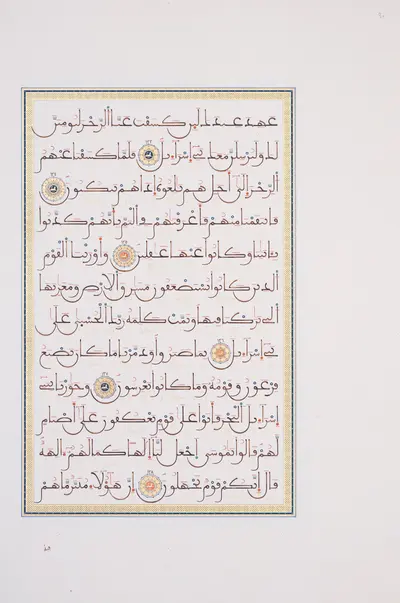 عهد عندك لين كشفت عنا الرجز لنومنن
لك ولنرسلن معك بني إسراءيل فلما كشفنا عنهم
الرجز إلى أجل هم بلغوه إذا هم ينكثون
فانتقمنا منهم فأغرقنهم في اليم بأنهم كذبوا
بئايتنا وكانوا عنها غفلين وأورثنا القوم
الذين كانوا يستضعفون مشرق الارض ومغربها
التي بركنا فيها وتمت كلمة ربك الحسنى على
بني إسراءيل بما صبروا ودمرنا ما كان يصنع
فرعون وقومه وما كانوا يعرشون وجوزنا ببني
إسراءيل البحر فأتوا على قوم يعكفون على أصنام
لهم قالوا يموسى اجعل لنا إلها كما لهم ءالهة
قال إنكم قوم تجهلون إن هؤلاء متبر ما هم